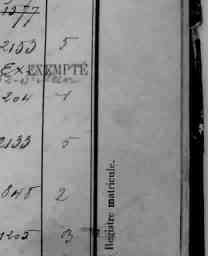 1377
2133 5
Ex. EXEMPTÉ
204 1
2133 5
848 2
1205 3
Registre matricule.